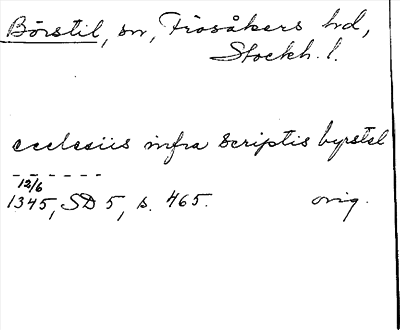 Börstil, sn, Frösåkers hd,
Stockh. l.
ecclesiis infra scriptis byrstel
- - - - - -
12/6
1345, SD 5, s. 465. orig.